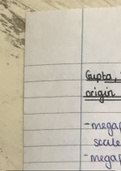 Gupta,
origin
-megap
scale
-megap